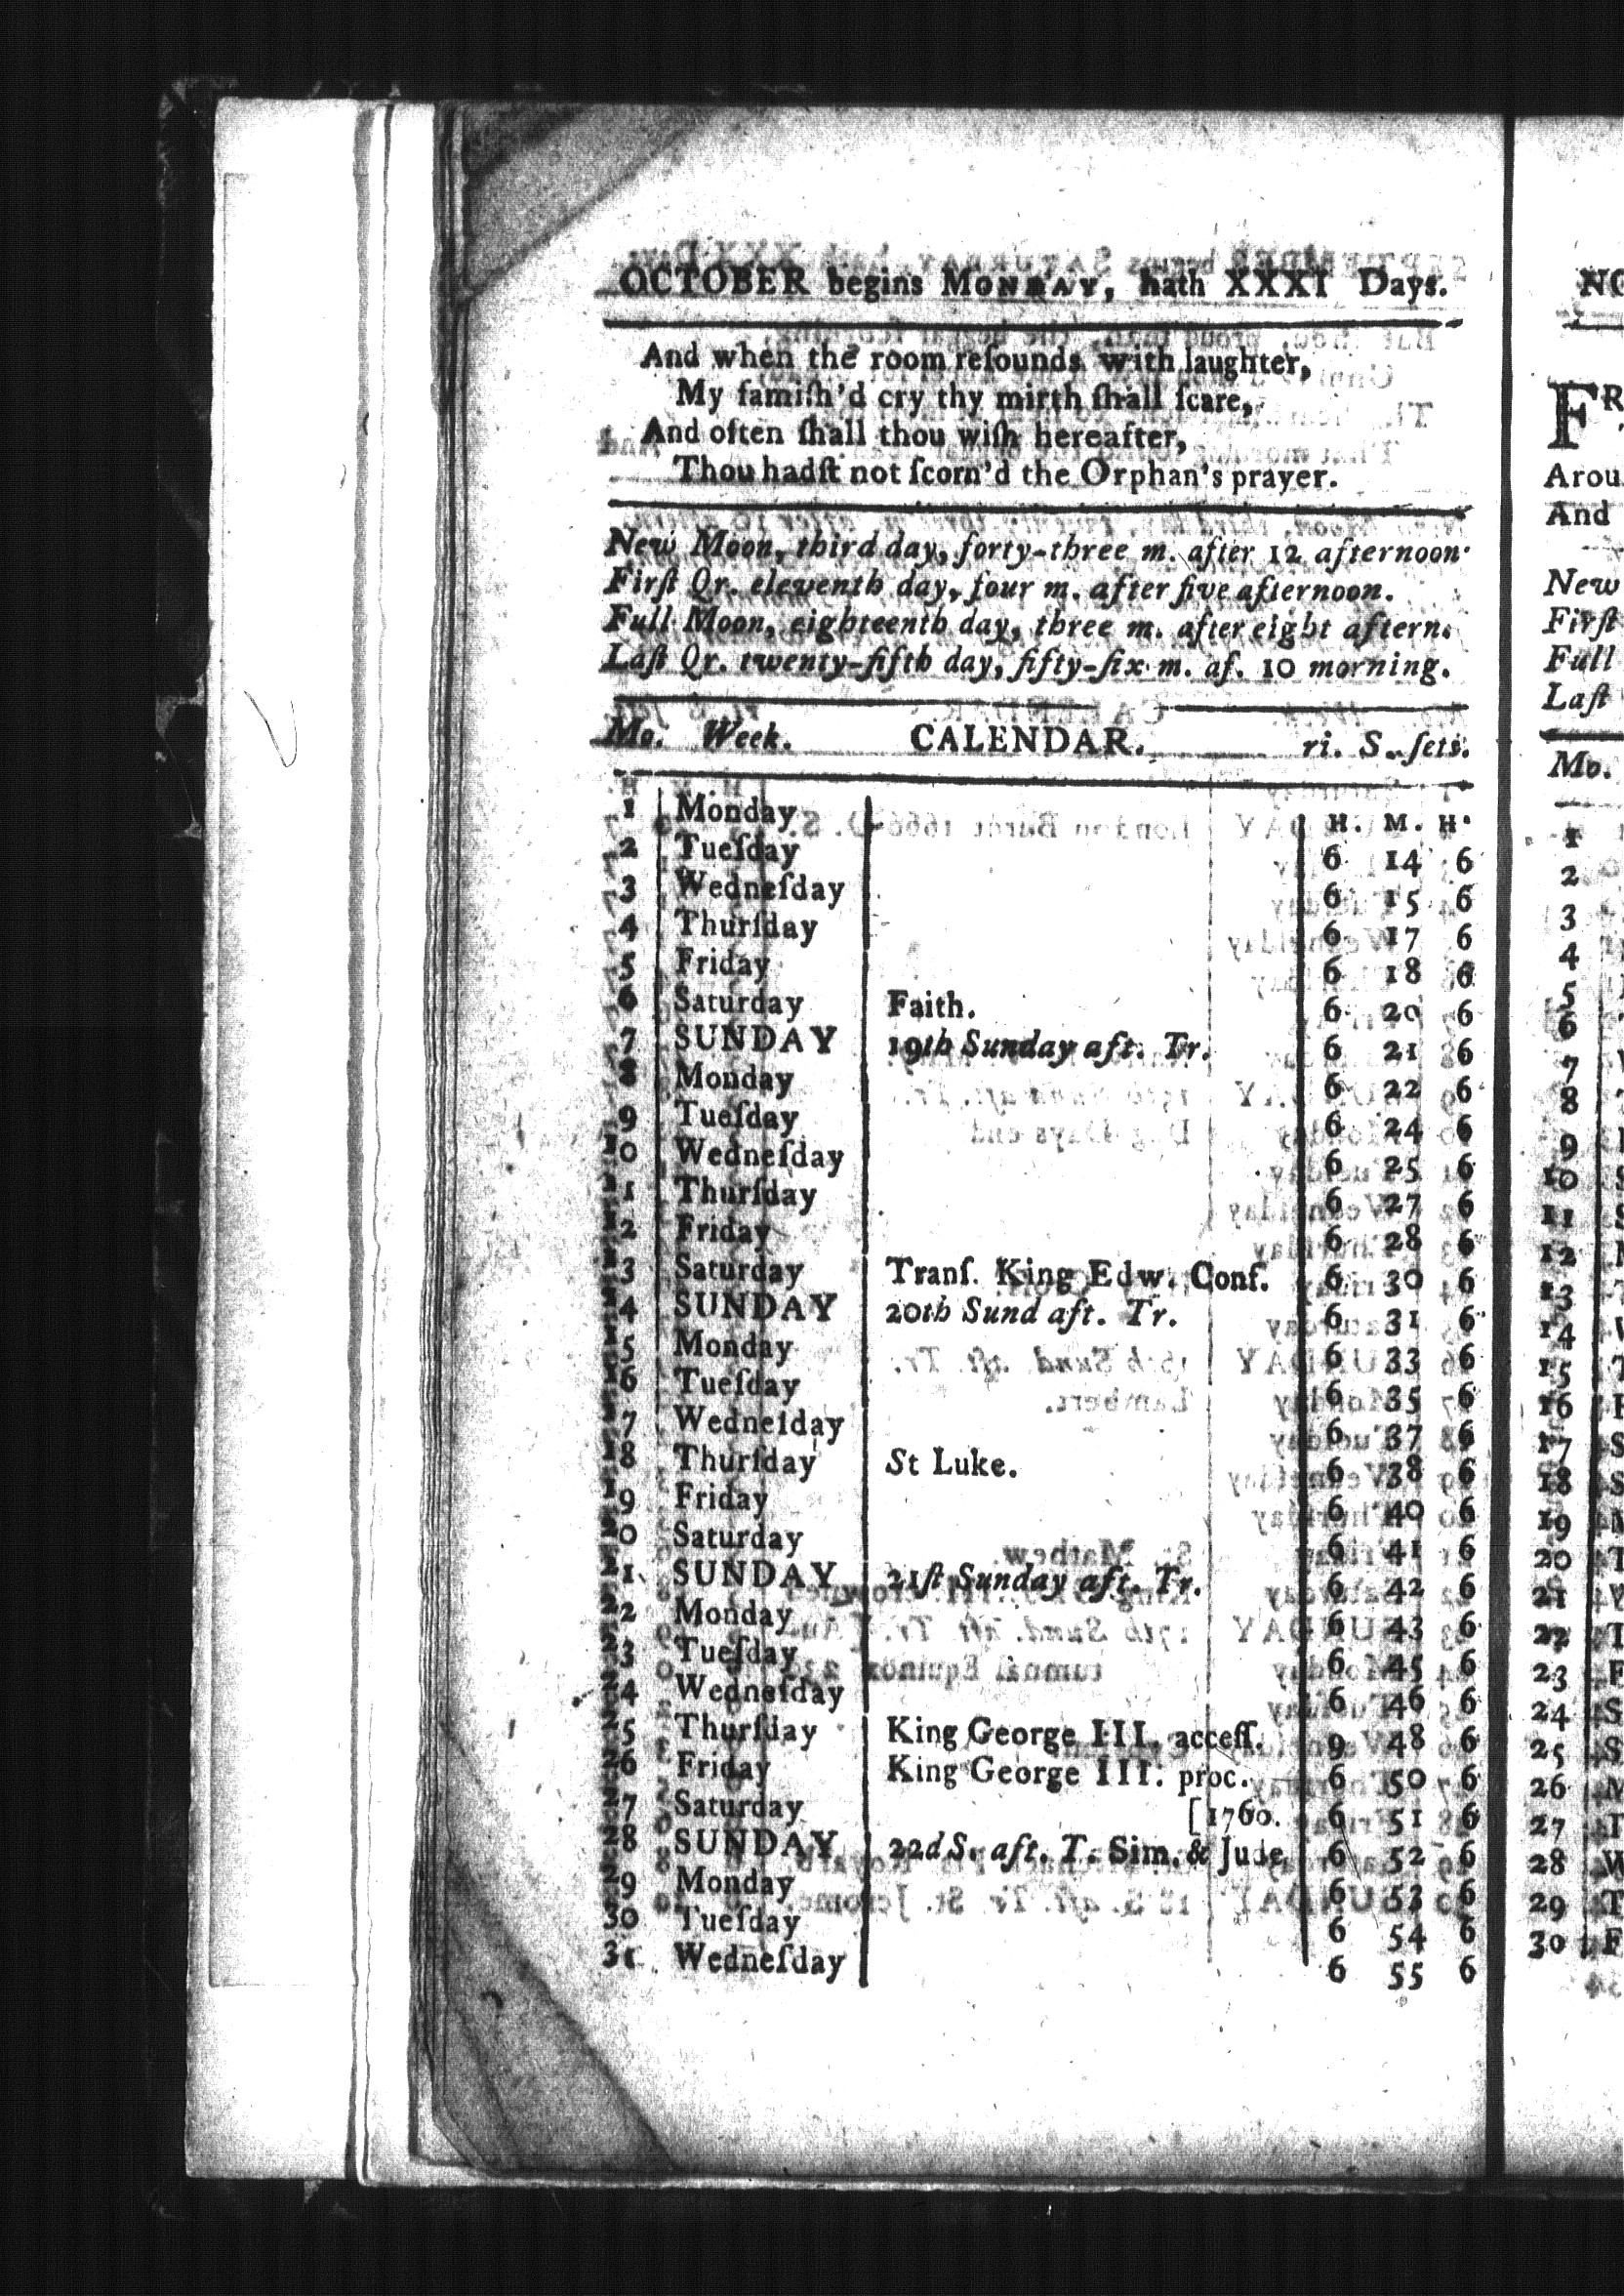 OCTOBER begins MONDAY, hath XXXI Days.
And when the room reſounds with laughter,
My famiſh'd cry thy mirth ſhall ſcare,
And often ſhall thou wiſh hereafter,
Thou hadſt not ſcorn'd the Orphan's prayer.
New Moon, third day, forty-three m. after 12 afternoon.
Firſt Qr. eleventh day, four m. after five afternoon.
Full Moon, eighteenth day, three m. after eight aftern.
Laſt Qr. twenty-fifth day, fifty-ſix m. af. 10 morning.
Mo. Week. CALENDAR. ri. S. ſets.
1 Monday H. M. H.
2 Tueſday 6 14 6
3 Wedneſday 6 15 6
4 Thurſday 6 17 6
5 Friday 6 18 6
6 Saturday Faith. 6 20 6
7 SUNDAY 19th Sunday aft. Tr. 6 21 6
8 Monday 6 22 6
9 Tueſday 6 24 6
10 Wedneſday 6 25 6
11 Thurſday 6 27 6
12 Friday 6 28 6
13 Saturday Tranſ. King Edw. Conf. 6 30 6
14 SUNDAY 20th Sund aft. Tr. 6 31 6
15 Monday 6 33 6
16 Tueſday 6 35 6
17 Wedneſday 6 37 6
18 Thurſday St Luke. 6 38 6
19 Friday 6 40 6
20 Saturday 6 41 6
21 SUNDAY 21ſt Sunday aft. Tr. 6 42 6
22 Monday 6 43 6
23 Tueſday 6 45 6
24 Wedneſday 6 46 6
25 Thurſday King George III. acceſſ. 9 48 6
26 Friday King George III. proc. 6 50 6
27 Saturday [1760. 6 51 6
28 SUNDAY 22d S. aft. T. Sim. & Jude 6 52 6
29 Monday 6 53 6
30 Tueſday 6 54 6
31 Wedneſday 6 55 6
NO
FR
Arou
And
New
Firſt
Full
Laſt
Mo.
1
2
3
4
5
6
7
8
9
10
11
12
13
14
15
16
17
18
19
20
21
22
23
24
25
26
27
28
29
30